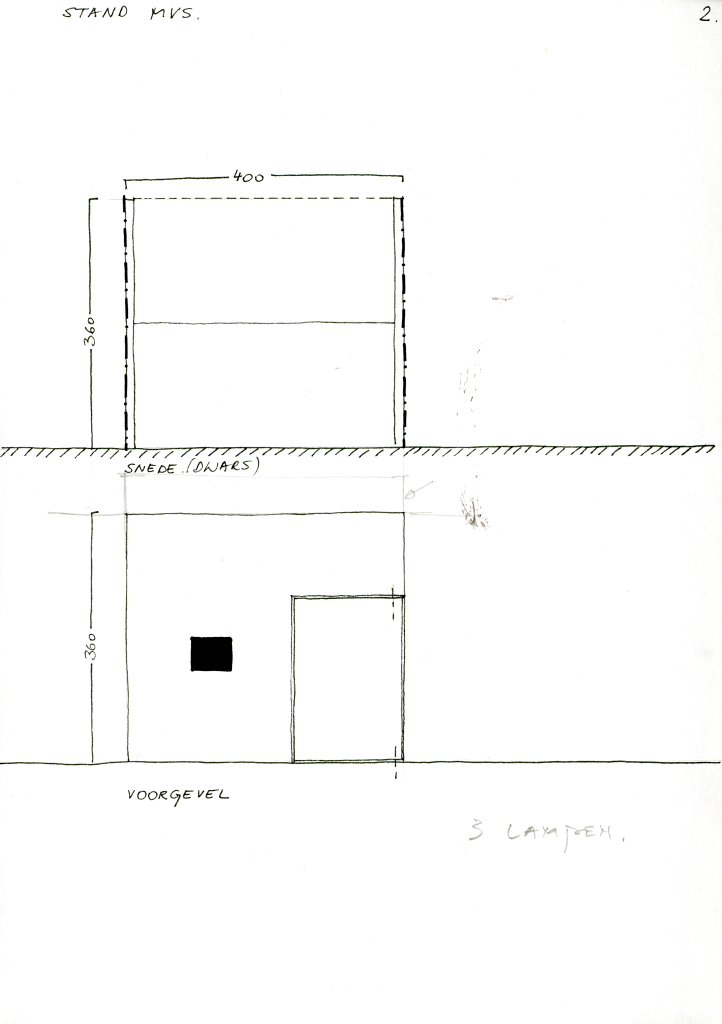 STAND MVS.
2.
400
360
SNEDE.(DWARS)
360
VOORGEVEL
3 LAMPEN.